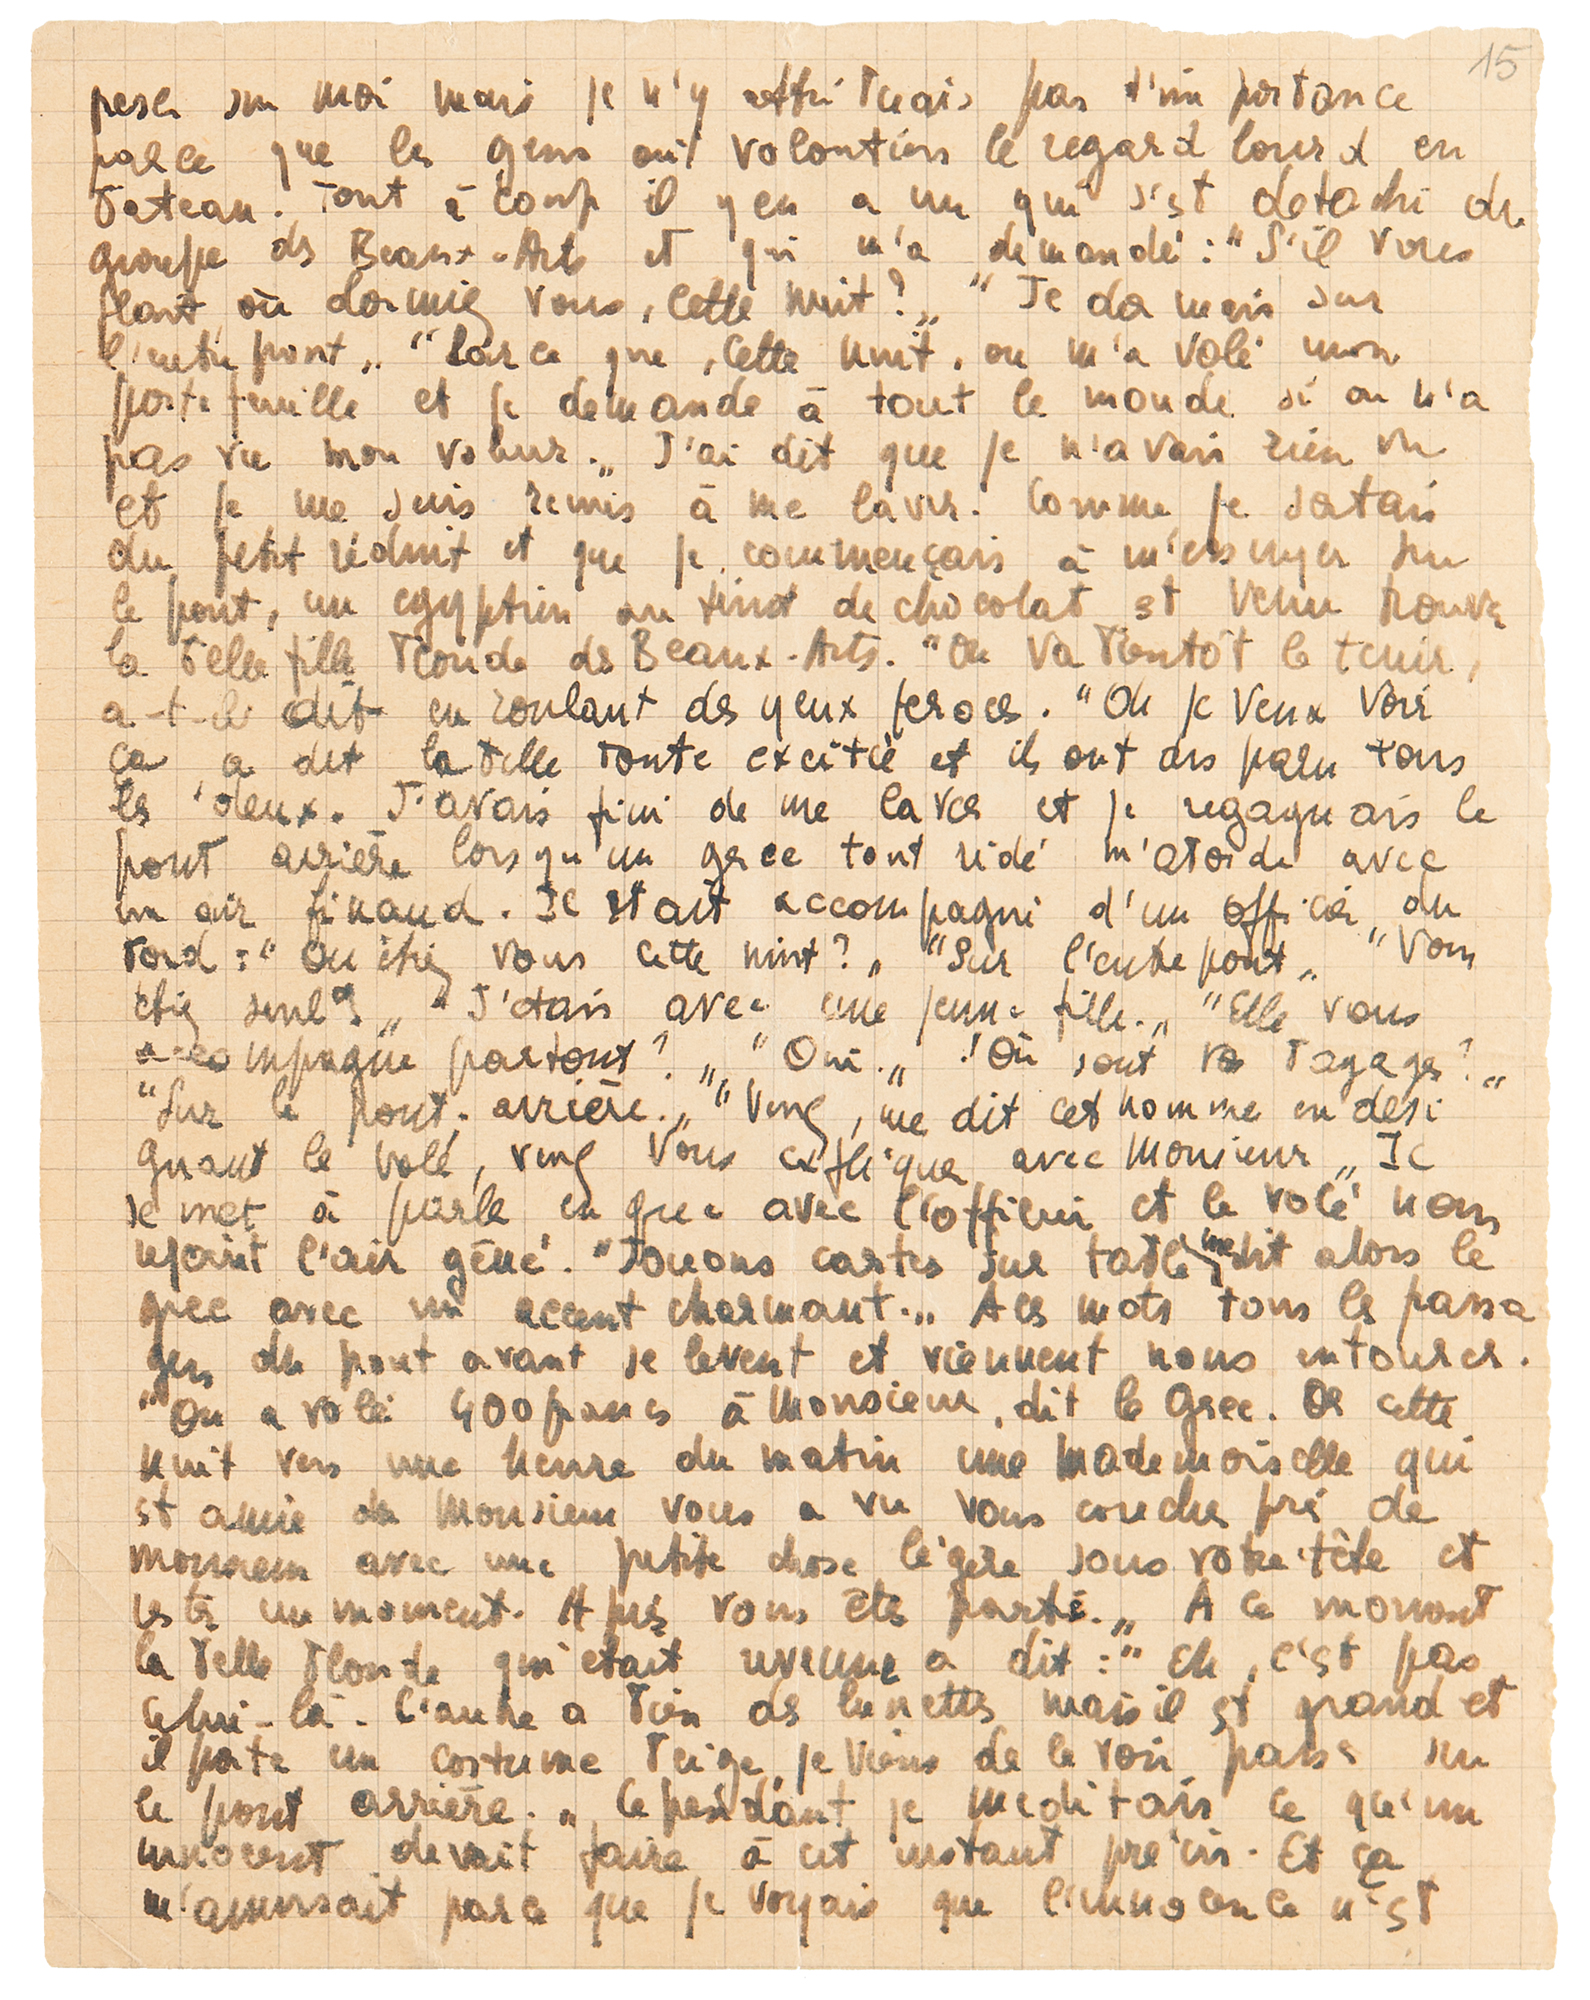 15
peser sur moi mais je n'y attribuais pas d'importance
parce que les gens ont volontiers le regard lourd en
bateau. Tout à coup il y en a un qui s'est détaché du
groupe des Beaux-Arts et qui m'a demandé : "S'il vous
plait, où dormiez vous, cette nuit ? „ "Je dormais sur
l'entrepont „ "Parce que, cette nuit, on m'a volé mon
portefeuille et je demande à tout le monde si on n'a
pas vu mon voleur. „ J'ai dit que je n'avais rien vu
et je me suis remis à me laver. Comme je sortais
du petit réduit et que je commençais à m'essuyer sur
le pont, un egyptien au teint de chocolat est venu trouver
la belle fille blonde des Beaux-Arts. "On va bientôt le tenir,
a-t-il dit en roulant des yeux feroces. "Oh je veux voir
ça, a dit la belle toute excitée et ils ont disparu tous
les deux. J'avais fini de me laver et je regagnais le
pont arrière lorsqu'un grec tout ridé m'aborde avec
un air finaud. Il était accompagné d'un officier du
bord : "Ou étiez vous cette nuit ? „ "Sur l'entrepont „ "Vous
étiez seul ? „ "J'étais avec une jeune fille. „ "Elle vous
accompagne partout ? „ "Oui. „ "Où sont vos bagages ? „
"Sur le pont arrière. „ "Venez, me dit cet homme en dési
gnant le volé, venez vous expliquer avec Monsieur „ Il
se met à parler en grec avec l'officier et le volé nous
rejoint l'air gêné. "Jouons cartes sur table, me dit alors le
grec avec un accent charmant. „ A ces mots tous les passa
gers du pont avant se levent et viennent nous entourer.
"On a volé 400 francs à Monsieur, dit le Grec. Or cette
nuit vers une heure du matin une mademoiselle qui
est amie de Monsieur vous a vu vous coucher près de
monsieur avec une petite chose légère sous votre tête et
rester un moment. Après vous êtes parti. „ A ce moment
la belle blonde qui etait revenue a dit : "Eh, c'est pas
celui-là. L'autre a bien des lunettes mais il est grand et
il porte un costume beige, je viens de le voir passer sur
le pont arrière. „ Cependant je meditais ce qu'un
innocent devait faire à cet instant précis. Et ça
m'amusait parce que je voyais que l'innocence n'est